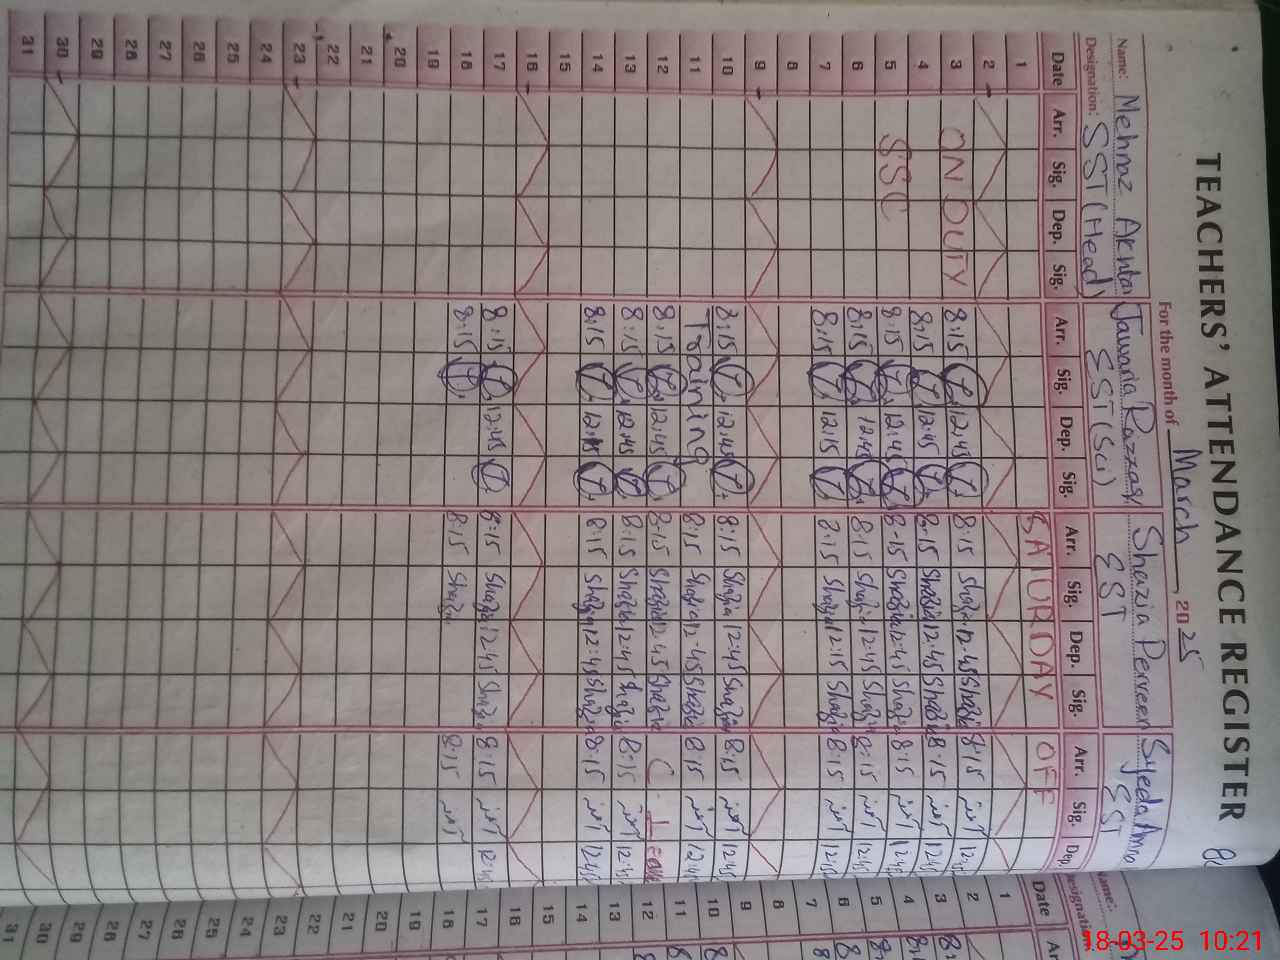 TEACHERS' ATTENDANCE REGISTER
For the month of March, 2025
Name: Mehnaz Akhtar Jawaria Razzaq Shazia Perveen Syeda Amna
Designation: SST (Head) EST (Sci) EST EST
Date Arr. Sig. Dep. Sig. Arr. Sig. Dep. Sig. Arr. Sig. Dep. Sig. Arr. Sig. Dep.
1 SATURDAY OFF
2
3 ON DUTY 8:15 12:45 8:15 Shazia 12:45 Shazia 8:15
4 8:15 12:45 8:15 Shazia 12:45 Shazia 8:15 12:45
5 SSC 8:15 12:45 8:15 Shazia 12:45 Shazia 8:15 12:45
6 8:15 12:45 8:15 Shazia 12:45 Shazia 8:15 12:45
7 8:15 12:15 8:15 Shazia 12:15 Shazia 8:15
8
9
10 8:15 12:45 8:15 Shazia 12:45 Shazia 8:15 12:45
11 Training 8:15 Shazia 12:45 Shazia 8:15 12:45
12 8:15 12:45 8:15 Shazia 12:45 Shazia C. Leave
13 8:15 12:45 8:15 Shazia 12:45 Shazia 8:15 12:45
14 8:15 8:15 Shazia 12:45 Shazia 8:15 12:45
15
16
17 8:15 12:45 8:15 Shazia 12:45 Shazia 8:15 12:45
18 8:15 8:15 Shazia 8:15
19
20
21
22
23
24
25
26
27
28
29
30
31
Name:
Designation:
Date Arr.
1
2
3 8
4
5
6
7
8
9
10
11
12
13
14
15
16
17
18
19
20
21
22
23
24
25
26
27
28
29
30
31
18-03-25 10:21